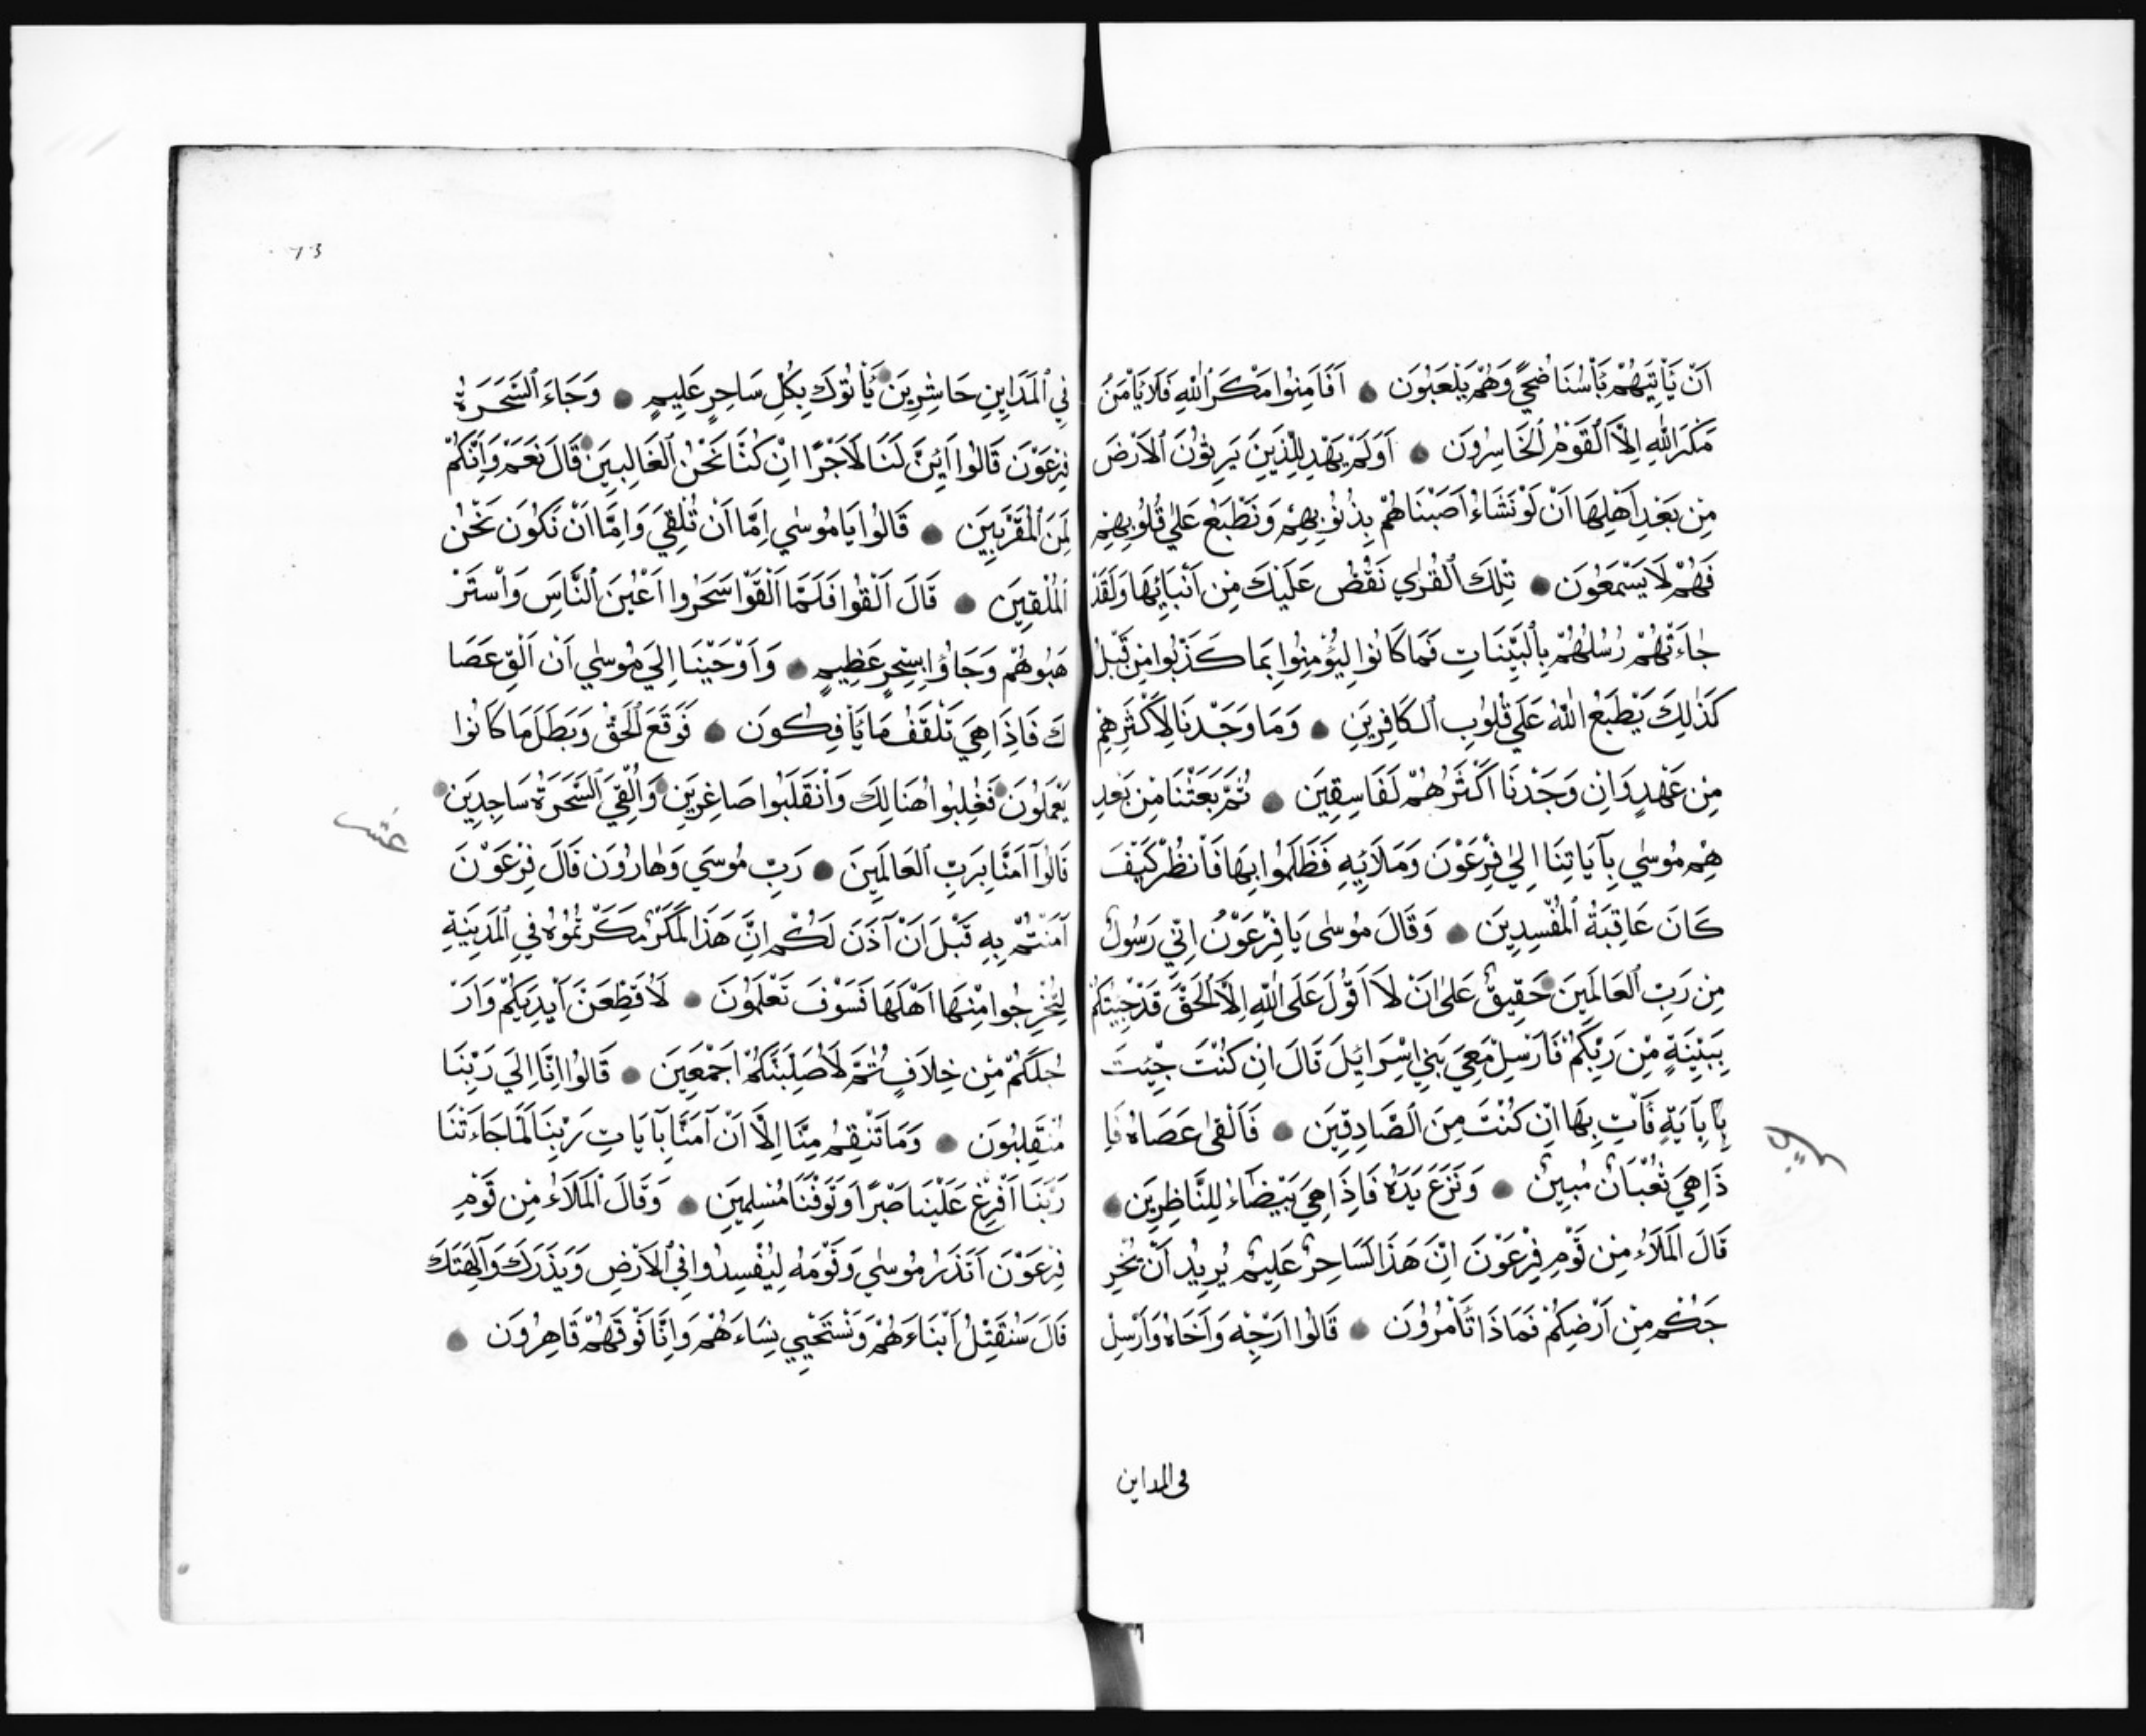 اَنْ يَأْتِيَهُمْ بَأْسُنَا ضُحًي وَهُمْ يَلْعَبُونَ ● اَفَاَمِنُوا مَكْرَ اللّٰهِ فَلَا يَاْمَنُ
مَكْرَ اللّٰهِ اِلَّا الْقَوْمُ الْخَاسِرُونَ ● اَوَلَمْ يَهْدِ لِلَّذِينَ يَرِثُونَ الْاَرْضَ
مِنْ بَعْدِ اَهْلِهَا اَنْ لَوْ نَشَاءُ اَصَبْنَاهُمْ بِذُنُوبِهِمْ وَنَطْبَعُ عَلٰي قُلُوبِهِمْ
فَهُمْ لَا يَسْمَعُونَ ● تِلْكَ الْقُرٰي نَقُصُّ عَلَيْكَ مِنْ اَنْبَائِهَا وَلَقَدْ
جَاءَتْهُمْ رُسُلُهُمْ بِالْبَيِّنَاتِ فَمَا كَانُوا لِيُؤْمِنُوا بِمَا كَذَّبُوا مِنْ قَبْلُ
كَذٰلِكَ يَطْبَعُ اللّٰهُ عَلٰي قُلُوبِ الْكَافِرِينَ ● وَمَا وَجَدْنَا لِاَكْثَرِهِمْ
مِنْ عَهْدٍ وَاِنْ وَجَدْنَا اَكْثَرَهُمْ لَفَاسِقِينَ ● ثُمَّ بَعَثْنَا مِنْ بَعْدِ
هِمْ مُوسٰي بِآيَاتِنَا اِلٰي فِرْعَوْنَ وَمَلَائِهِ فَظَلَمُوا بِهَا فَانْظُرْ كَيْفَ
كَانَ عَاقِبَةُ الْمُفْسِدِينَ ● وَقَالَ مُوسٰى يَا فِرْعَوْنُ اِنّي رَسُولٌ
مِنْ رَبِّ الْعَالَمِينَ ● حَقِيقٌ عَلٰى اَنْ لَا اَقُولَ عَلَى اللّٰهِ اِلَّا الْحَقَّ قَدْ جِئْتُكُمْ
بِبَيِّنَةٍ مِنْ رَبِّكُمْ فَاَرْسِلْ مَعِيَ بَنِي اِسْرَائِلَ قَالَ اِنْ كُنْتَ جِئْتَ
بِآيَةٍ فَأْتِ بِهَا اِنْ كُنْتَ مِنَ الصَّادِقِينَ ● فَاَلْقٰى عَصَاهُ فَاِ
ذَا هِيَ ثُعْبَانٌ مُبِينٌ ● وَنَزَعَ يَدَهُ فَاِذَا هِيَ بَيْضَاءُ لِلنَّاظِرِينَ ●
قَالَ الْمَلَاءُ مِنْ قَوْمِ فِرْعَوْنَ اِنَّ هَذَا لَسَاحِرٌ عَلِيمٌ يُرِيدُ اَنْ يُخْرِ
جَكُمْ مِنْ اَرْضِكُمْ فَمَاذَا تَأْمُرُونَ ● قَالُوا اَرْجِهْ وَاَخَاهُ وَاَرْسِلْ
في المداين
٦٣
فِي الْمَدَايِنِ حَاشِرِينَ ● يَأْتُوكَ بِكُلِّ سَاحِرٍ عَلِيمٍ ● وَجَاءَ السَّحَرَةُ
فِرْعَوْنَ قَالُوا اَئِنَّ لَنَا لَاَجْرًا اِنْ كُنَّا نَحْنُ الْغَالِبِينَ ● قَالَ نَعَمْ وَاِنَّكُمْ
لَمِنَ الْمُقَرَّبِينَ ● قَالُوا يَا مُوسٰي اِمَّا اَنْ تُلْقِيَ وَاِمَّا اَنْ نَكُونَ نَحْنُ
الْمُلْقِينَ ● قَالَ اَلْقُوا فَلَمَّا اَلْقَوْا سَحَرُوا اَعْيُنَ النَّاسِ وَاسْتَرْ
هَبُوهُمْ وَجَاؤُا بِسِحْرٍ عَظِيمٍ ● وَاَوْحَيْنَا اِلَي مُوسٰي اَنْ اَلْقِ عَصَا
كَ فَاِذَا هِيَ تَلْقَفُ مَا يَأْفِكُونَ ● فَوَقَعَ الْحَقُّ وَبَطَلَ مَا كَانُوا
يَعْمَلُونَ ● فَغُلِبُوا هُنَالِكَ وَانْقَلَبُوا صَاغِرِينَ ● وَاُلْقِيَ السَّحَرَةُ سَاجِدِينَ ●
قَالُوا آمَنَّا بِرَبِّ الْعَالَمِينَ ● رَبِّ مُوسَي وَهٰارُونَ قَالَ فِرْعَوْنَ
آمَنْتُمْ بِهِ قَبْلَ اَنْ آذَنَ لَكُمْ اِنَّ هَذَا لَمَكْرٌ مَكَرْتُمُوهُ فِي الْمَدِينَةِ
لِتُخْرِجُوا مِنْهَا اَهْلَهَا فَسَوْفَ تَعْلَمُونَ ● لَاُقَطِّعَنَّ اَيْدِيَكُمْ وَاَرْ
جُلَكُمْ مِنْ خِلَافٍ ثُمَّ لَاُصَلِّبَنَّكُمْ اَجْمَعِينَ ● قَالُوا اِنَّا اِلَي رَبِّنَا
مُنْقَلِبُونَ ● وَمَا تَنْقِمُ مِنَّا اِلَّا اَنْ آمَنَّا بِآيَاتِ رَبِّنَا لَمَّا جَاءَتْنَا
رَبَّنَا اَفْرِغْ عَلَيْنَا صَبْرًا وَتَوَفَّنَا مُسْلِمِينَ ● وَقَالَ الْمَلَاءُ مِنْ قَوْمِ
فِرْعَوْنَ اَتَذَرُ مُوسٰي وَقَوْمَهُ لِيُفْسِدُوا فِي الْاَرْضِ وَيَذَرَكَ وَآلِهَتَكَ
قَالَ سَنُقَتِّلُ اَبْنَاءَهُمْ وَنَسْتَحْيِي نِسَاءَهُمْ وَاِنَّا فَوْقَهُمْ قَاهِرُونَ ●
عشر